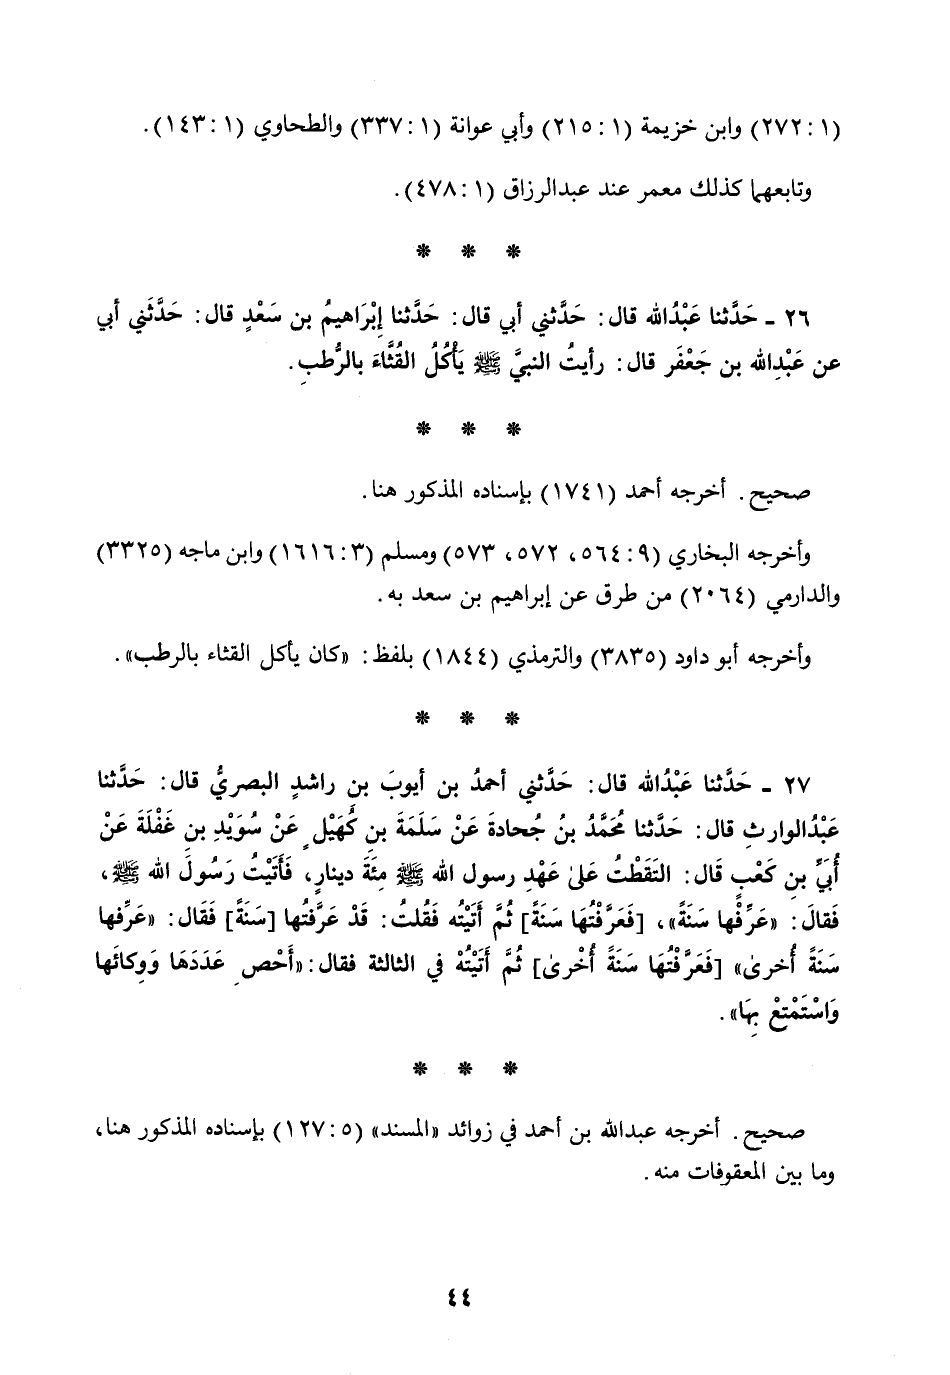 (١ : ٢٧٢) وابن خزيمة (١ : ٢١٥) وأبي عوانة (١ : ٣٣٧) والطحاوي (١ : ١٤٣).
وتابعهما كذلك معمر عند عبدالرزاق (١ : ٤٧٨).
* * *
٢٦ ـ حَدَّثنا عَبْدُالله قال: حَدَّثني أبي قال: حَدَّثنا إبْرَاهيمُ بن سَعْدٍ قال: حَدَّثَني أبي
عن عَبْدِالله بن جَعْفَر قال: رأيتُ النبيَّ ﷺ يَأْكُلُ القُثَّاءَ بالرُّطبِ.
* * *
صحيح. أخرجه أحمد (١٧٤١) بإسناده المذكور هنا.
وأخرجه البخاري (٩ : ٥٦٤، ٥٧٢، ٥٧٣) ومسلم (٣ : ١٦١٦) وابن ماجه (٣٣٢٥)
والدارمي (٢٠٦٤) من طرق عن إبراهيم بن سعد به.
وأخرجه أبو داود (٣٨٣٥) والترمذي (١٨٤٤) بلفظ: «كان يأكل القثاء بالرطب».
* * *
٢٧ ـ حَدَّثنا عَبْدُالله قال: حَدَّثني أحمدُ بن أيوبَ بن راشدٍ البصريُّ قال: حَدَّثنا
عَبْدُالوارثِ قال: حَدَّثنا مُحَمَّدُ بنُ جُحادةَ عَنْ سَلَمَةَ بنِ كُهَيْلٍ عَنْ سُوَيْدِ بنِ غَفْلَةَ عَنْ
أُبَيِّ بنِ كَعْبٍ قَالَ: التَقَطْتُ عَلىٰ عَهْدِ رسول الله ﷺ مِئَةَ دينارٍ، فَأتَيْتُ رَسُولَ الله ﷺ،
فَقالَ: «عَرِّفْها سَنَةً»، [فَعَرَّفْتُهَا سَنَةً] ثُمَّ أتَيْتُه فَقُلتُ: قَدْ عَرَّفتُها [سَنَةً] فَقَال: «عَرِّفها
سَنَةً أُخرىٰ» [فَعَرَّفْتُهَا سَنَةً أُخْرىٰ] ثُمَّ أتَيْتُهْ في الثالثة فقال: «أَحْصِ عَدَدَهَا وَوِكائَها
وَاسْتَمْتِعْ بِهَا».
* * *
صحيح. أخرجه عبدالله بن أحمد في زوائد «المسند» (٥ : ١٢٧) بإسناده المذكور هنا،
وما بين المعقوفات منه.
٤٤